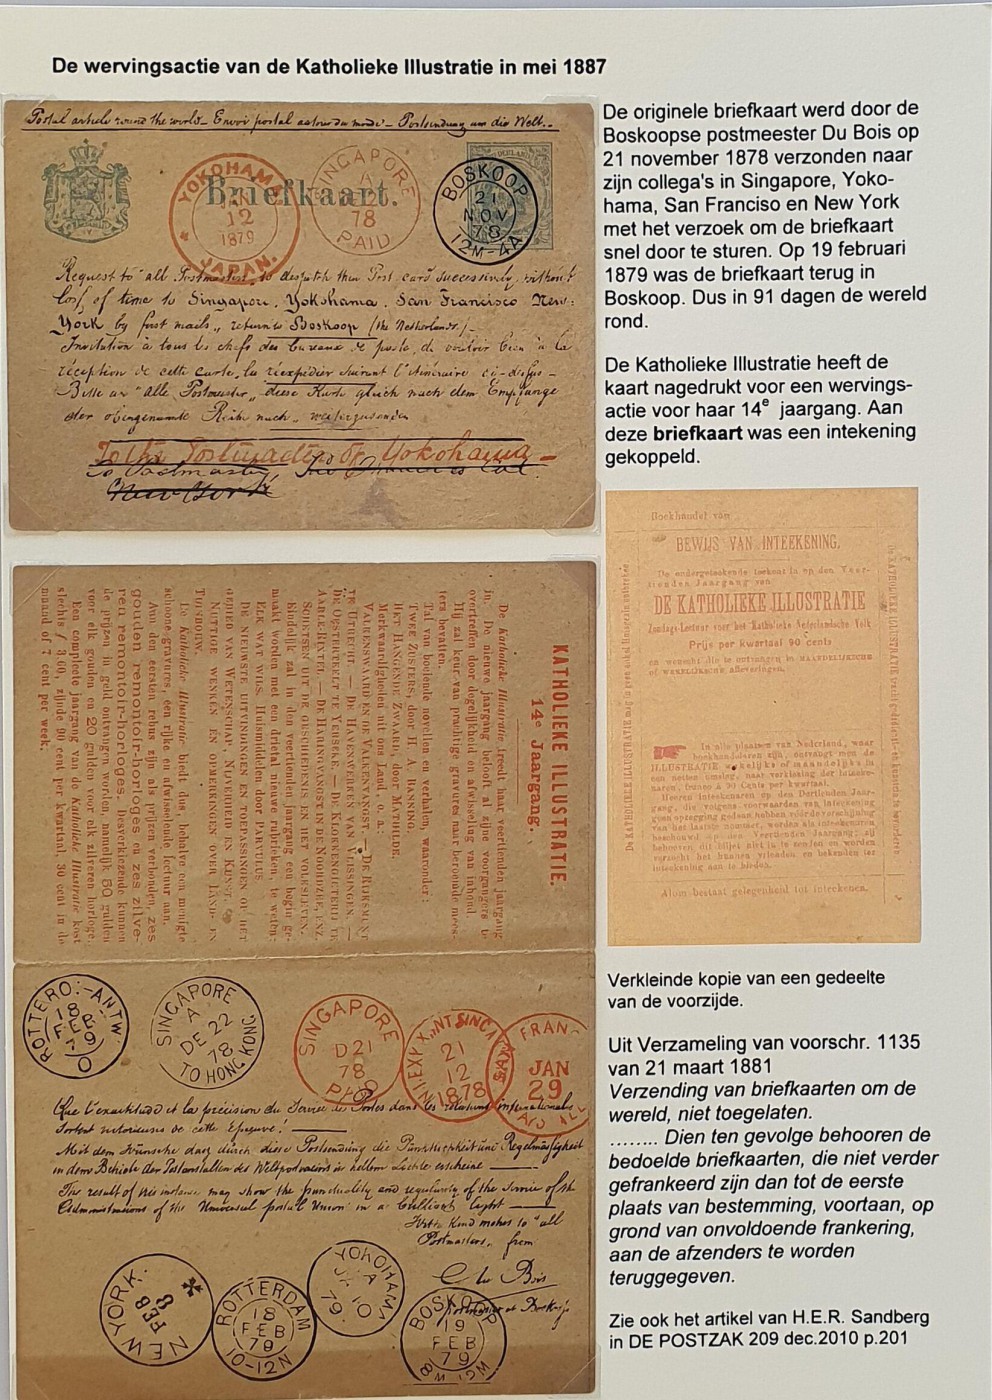 De wervingsactie van de Katholieke Illustratie in mei 1887
Postal article round the world - Envoi postal autour du monde - Postsendung um die Welt.
YOKOHAMA
JAN
12
1879
JAPAN.
Briefkaart.
SINGAPORE
A
12
78
PAID
BOSKOOP
21
NOV
78
12M-4A
Request to "all Postmasters" to despatch this Post card successively, without
loss of time to Singapore, Yokohama, San Francisco New-
York by first mails, return to Boskoop (the Netherlands)
Invitation à tous les chefs des bureaux de poste, de vouloir bien à la
réception de cette carte, la réexpédier suivant l'itinéraire ci-dessus-
Bitte an "alle Postmeister", diese Karte gleich nach dem Empfange
der obengenannte Reihe nach, weiterzusenden
To the Postmaster of Yokohama
To Postmaster San Francisco Cal.
New York
De originele briefkaart werd door de
Boskoopse postmeester Du Bois op
21 november 1878 verzonden naar
zijn collega's in Singapore, Yoko-
hama, San Franciso en New York
met het verzoek om de briefkaart
snel door te sturen. Op 19 februari
1879 was de briefkaart terug in
Boskoop. Dus in 91 dagen de wereld
rond.
De Katholieke Illustratie heeft de
kaart nagedrukt voor een wervings-
actie voor haar 14e jaargang. Aan
deze briefkaart was een intekening
gekoppeld.
Boekhandel van
BEWIJS VAN INTEEKENING.
De ondergeteekende teekent in op den Veer-
tienden Jaargang van
DE KATHOLIEKE ILLUSTRATIE
Zondags-Lectuur voor het Katholieke Nederlandsche Volk
Prijs per kwartaal 90 cents
en wenscht die te ontvangen in MAANDELIJKSCHE
of WEKELIJKSCHE Afleveringen.
In alle plaatsen van Nederland, waar
boekhandelaren zijn, ontvangt men de
ILLUSTRATIE wekelijks of maandelijks in
een netten omslag, naar verkiezing der inteeke-
naren, franco à 90 Cents per kwartaal.
Heeren inteekenaren op den Dertienden Jaar-
gang, die volgens voorwaarden van inteekening
geen opzegging gedaan hebben vóór de verschijning
van het laatste nummer, worden als inteekenaren
beschouwd op den Veertienden Jaargang; zij
behoeven dit biljet niet in te zenden en worden
verzocht het hunne vrienden en bekenden ter
inteekening aan te bieden.
Alom bestaat gelegenheid tot inteekenen.
KATHOLIEKE ILLUSTRATIE.
14e Jaargang.
De Katholieke Illustratie treedt haar veertienden jaargang
in. De nieuwe jaargang belooft al zijne voorgangers te
overtreffen door degelijkheid en afwisseling van inhoud.
Hij zal keur van prachtige gravures naar beroemde mees-
ters bevatten.
Tal van boeiende novellen en verhalen, waaronder:
TWEE ZUSTERS, door H. A. BANNING.
HET HANGENDE ZWAARD, door MATHILDE.
Merkwaardigheden uit ons Land, o. a.:
VALKENSWAARD EN DE VALKENVANGST. — DE RIJKSMUNT
TE UTRECHT. — DE HAVENWERKEN VAN VLISSINGEN. —
DE OESTERTEELT TE YERSEKE. — DE KLOKKENGIETERIJ TE
AARLE-RIXTEL. — DE HARINGVANGST IN DE NOORDZEE, ENZ.
SCHETSEN UIT DE GESCHIEDENIS EN HET VOLKSLEVEN.
Eindelijk zal in den veertienden jaargang een begin ge-
maakt worden met een drietal nieuwe rubrieken, te weten:
ELK WAT WILS. Huismiddelen door PARVULUS
DE NIEUWSTE UITVINDINGEN EN TOEPASSINGEN OP HET
GEBIED VAN WETENSCHAP, NIJVERHEID EN KUNST.
NUTTIGE WENKEN EN OPMERKINGEN OVER LAND- EN
TUINBOUW.
De Katholieke Illustratie biedt dus, behalve een menigte
schoone gravures, een rijke en afwisselende lectuur aan.
Aan den eersten rebus zijn als prijzen verbonden, zes
gouden remontoir-horloges en zes zilve-
ren remontoir-horloges. Desverkiezende kunnen
de prijzen in geld ontvangen worden, namelijk 50 gulden
voor elk gouden en 20 gulden voor elk zilveren horloge.
Een compleete jaargang van de Katholieke Illustratie kost
slechts ƒ 3,60, zijnde 90 cent per kwartaal, 30 cent in de
maand of 7 cent per week.
ROTTERD:-ANTW.
18
FEB
79
O
SINGAPORE
A
DE 22
78
TO HONG KONG
SINGAPORE
D21
78
PAID
21
12
1878
FRAN
JAN
29
PAID ALL
Que l'exactitude et la précision du Service des Postes dans les relations internationales
sortent victorieuses de cette Epreuve!
Mit dem Wunsche dasz durch diese Postsendung die Pünktlichkeit und Regelmäszigkeit
in dem Betriebe der Postanstalten des Weltpostvereins in hellem Lichte erscheine
The result of this instance may show the punctuality and regularity of the service of the
Administrations of the Universal postal Union in a brilliant light
With kind motives to "all
Postmasters, from
C Du Bois
Postmaster at Boskoop
NEW YORK.
FEB
8
ROTTERDAM
18
FEB
79
10-12N
YOKOHAMA
JA 10
79
BOSKOOP
19
FEB
79
Verkleinde kopie van een gedeelte
van de voorzijde.
Uit Verzameling van voorschr. 1135
van 21 maart 1881
Verzending van briefkaarten om de
wereld, niet toegelaten.
........ Dien ten gevolge behooren de
bedoelde briefkaarten, die niet verder
gefrankeerd zijn dan tot de eerste
plaats van bestemming, voortaan, op
grond van onvoldoende frankering,
aan de afzenders te worden
teruggegeven.
Zie ook het artikel van H.E.R. Sandberg
in DE POSTZAK 209 dec.2010 p.201